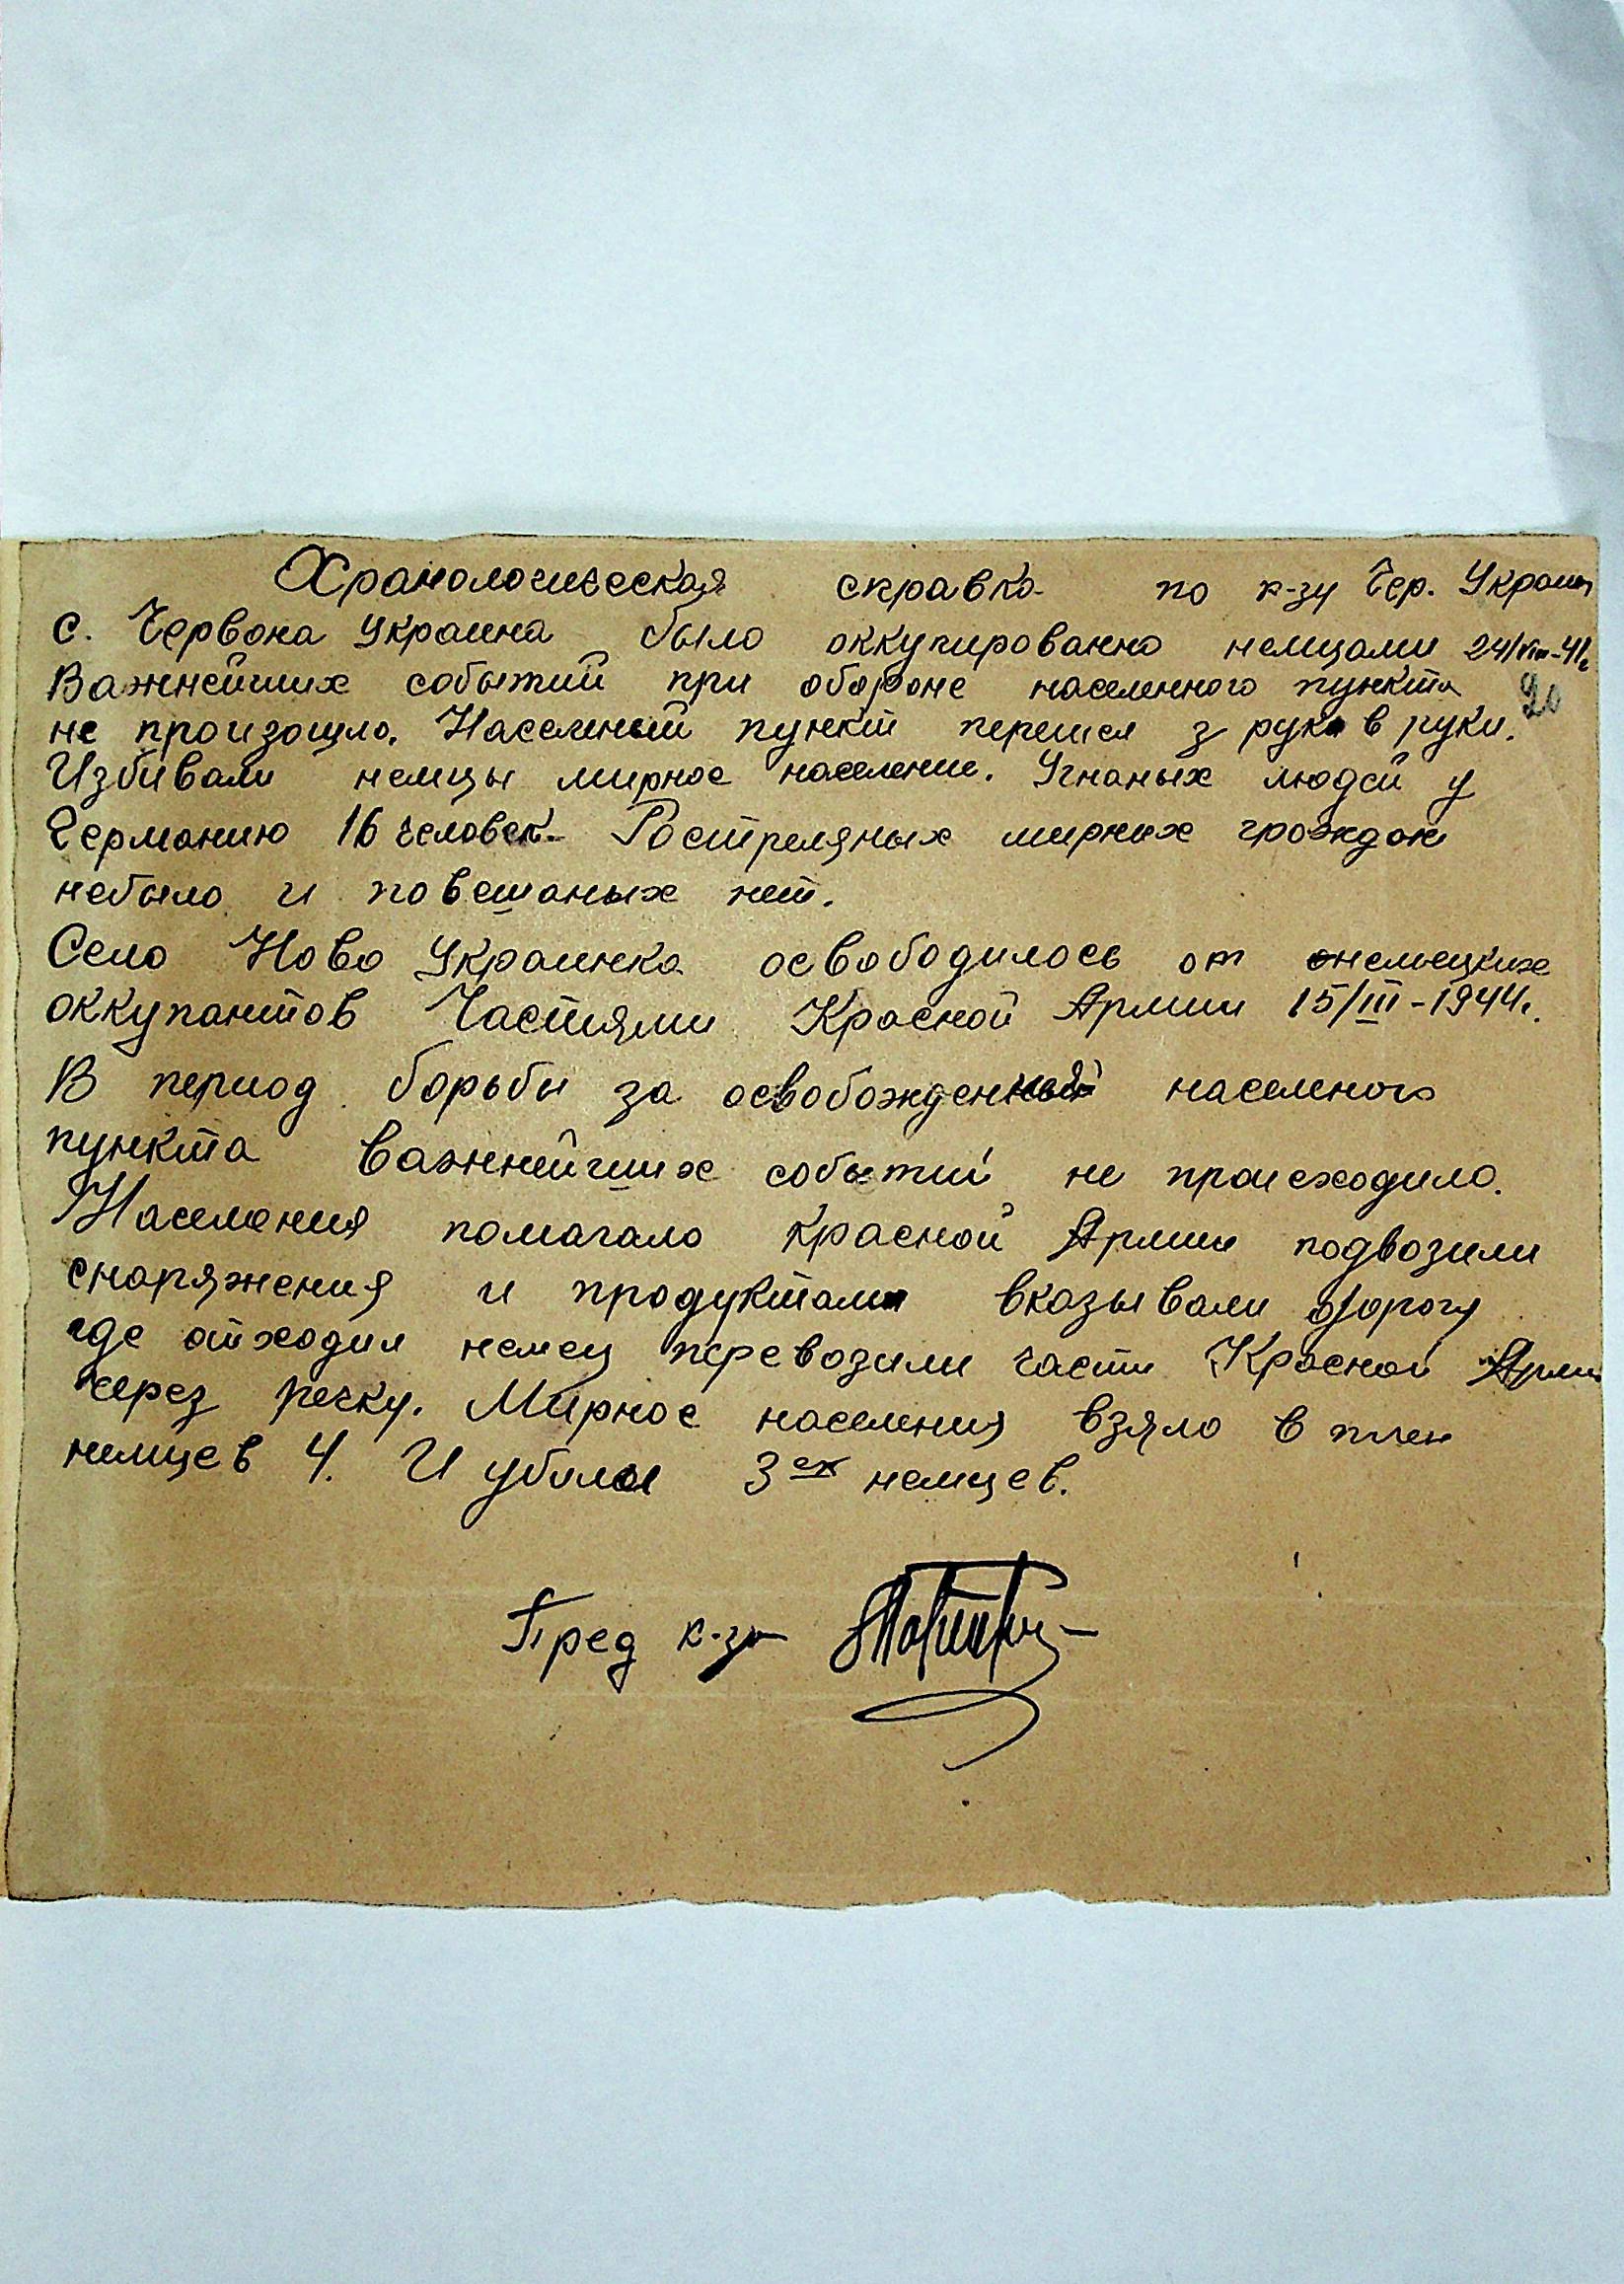 Хранологическая справка по к-зу Чер. Украина
с. Червона Украина было оккупированно немцами 24/VIII-41г.
Важнейших событий при обороне населенного пункта
20
не произошло. Населеный пункт перешел з рук в руки.
Избивали немцы мирное население. Угнаных людей у
Германию 16 человек. Ростреляных мирних граждан
небыло и повешаных нет.
Село Ново Украинка освободилось от немецких
оккупантов Частями Красной Армии 15/III-1944г.
В период борьбы за освобождений населеного
пункта важнейших событий не происходило.
Населения помагало Красной Армии подвозили
снаряжения и продуктами вказывали дорогу
где отходил немец перевозили части Красной Армии
через речку. Мирное населения взяло в плен
немцев 4. И убило 3ех немцев.
Пред к-за